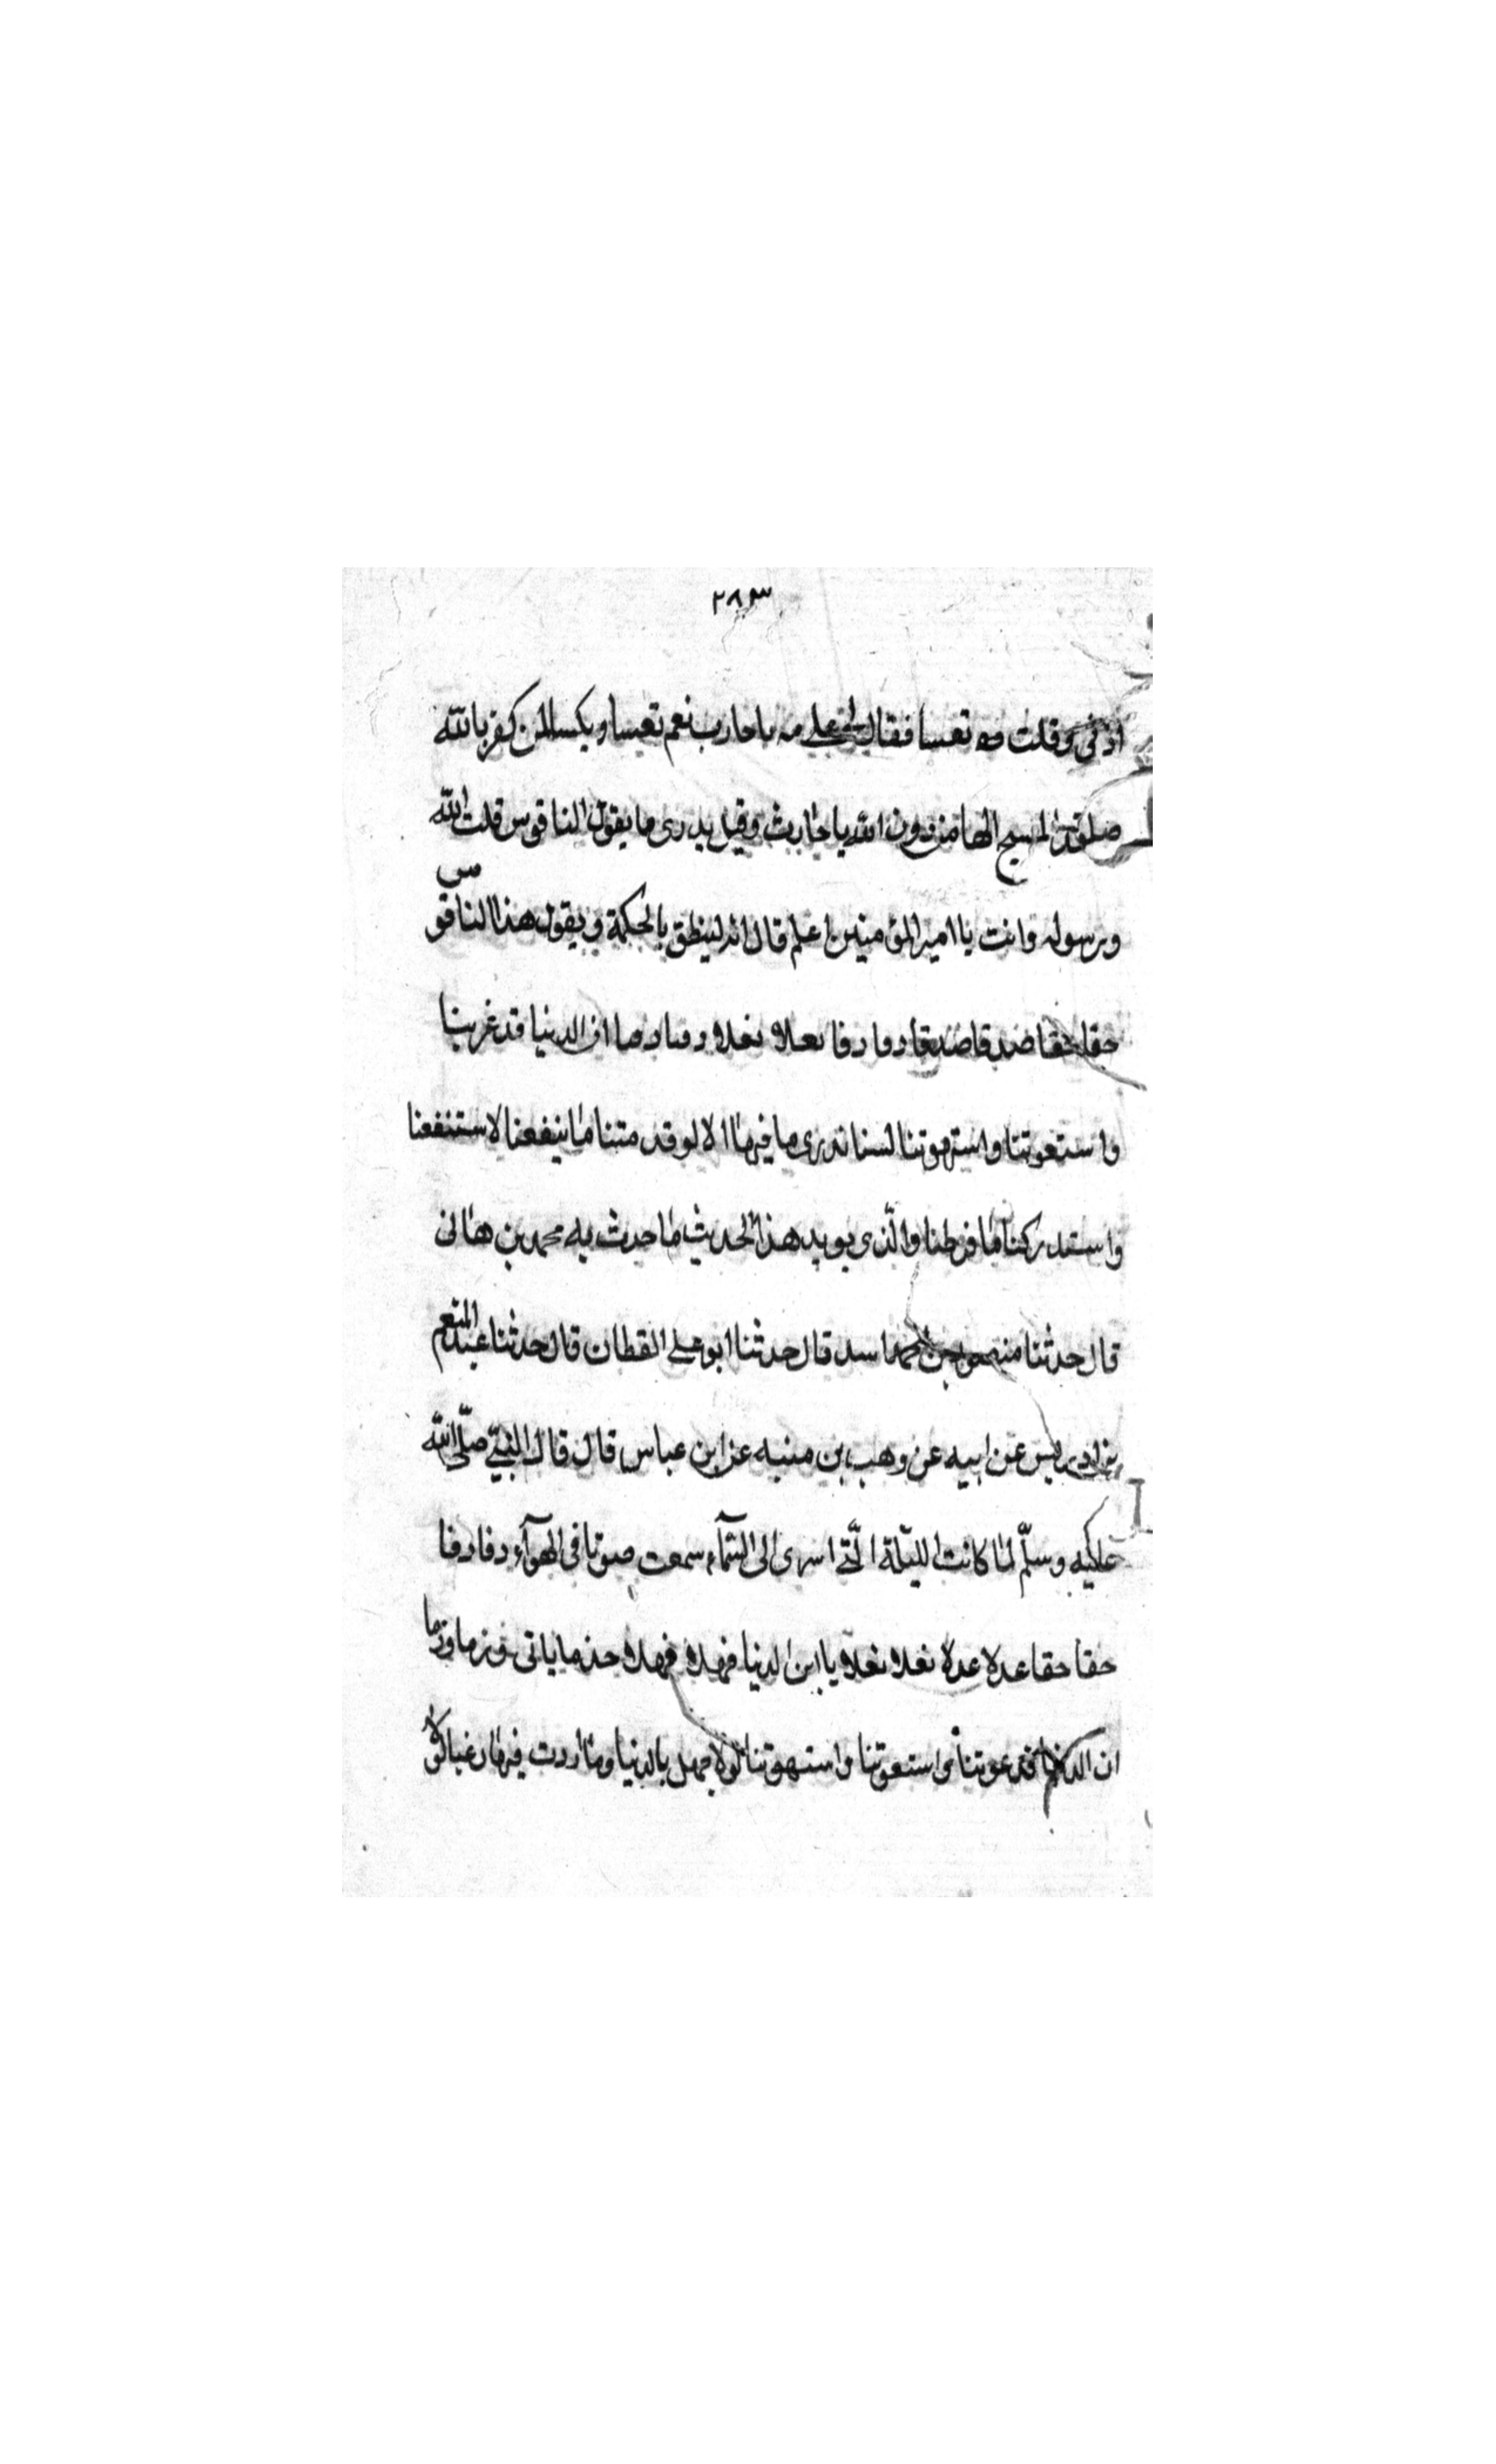 ٢٨٣
اذنى وقلت تعسا فقال على مه يا حارث نعم تعسا و نكسا لمن كفر بالله
المسيح الها من دون الله يا حارث وقيل يدرى ما يقول الناقوس قلت الله
ورسوله وانت يا امير المؤمنين اعلم قال انه لينطق بالحكمة ويقول هذا الناقوس
حقا حقا صدقا صدقا دما دما ان الدنيا قد غرتنا
واستغوتنا واستهوتنا لسنا ندرى ما فيها الا لو قد متنا ما ينفعنا لاستنفعنا
واستدركنا ما فرطنا والّذى يويد هذا الحديث ما حدث به محمد بن هانى
قال حدثنا اسد قال حدثنا ابو على القطان قال حدثنا عبد المنعم
بن ادريس عن ابيه عن وهب بن منبه عن ابن عباس قال قال النبىّ صلّى الله
عليه وسلّم لما كانت الليلة الّتى اسرى الى السّمآء سمعت صوتا فى الهوآء دفا دفا
حقا حقا عدلا عدلا نعلا نعلا يا ابن الدنيا فهلا فهلا خذ ما ياتى وزنا وزنا
ان الدنيا قد غوتنا واستغوتنا واستهوتنا لولا جهل بالدنيا وما اردت فيها رغبا